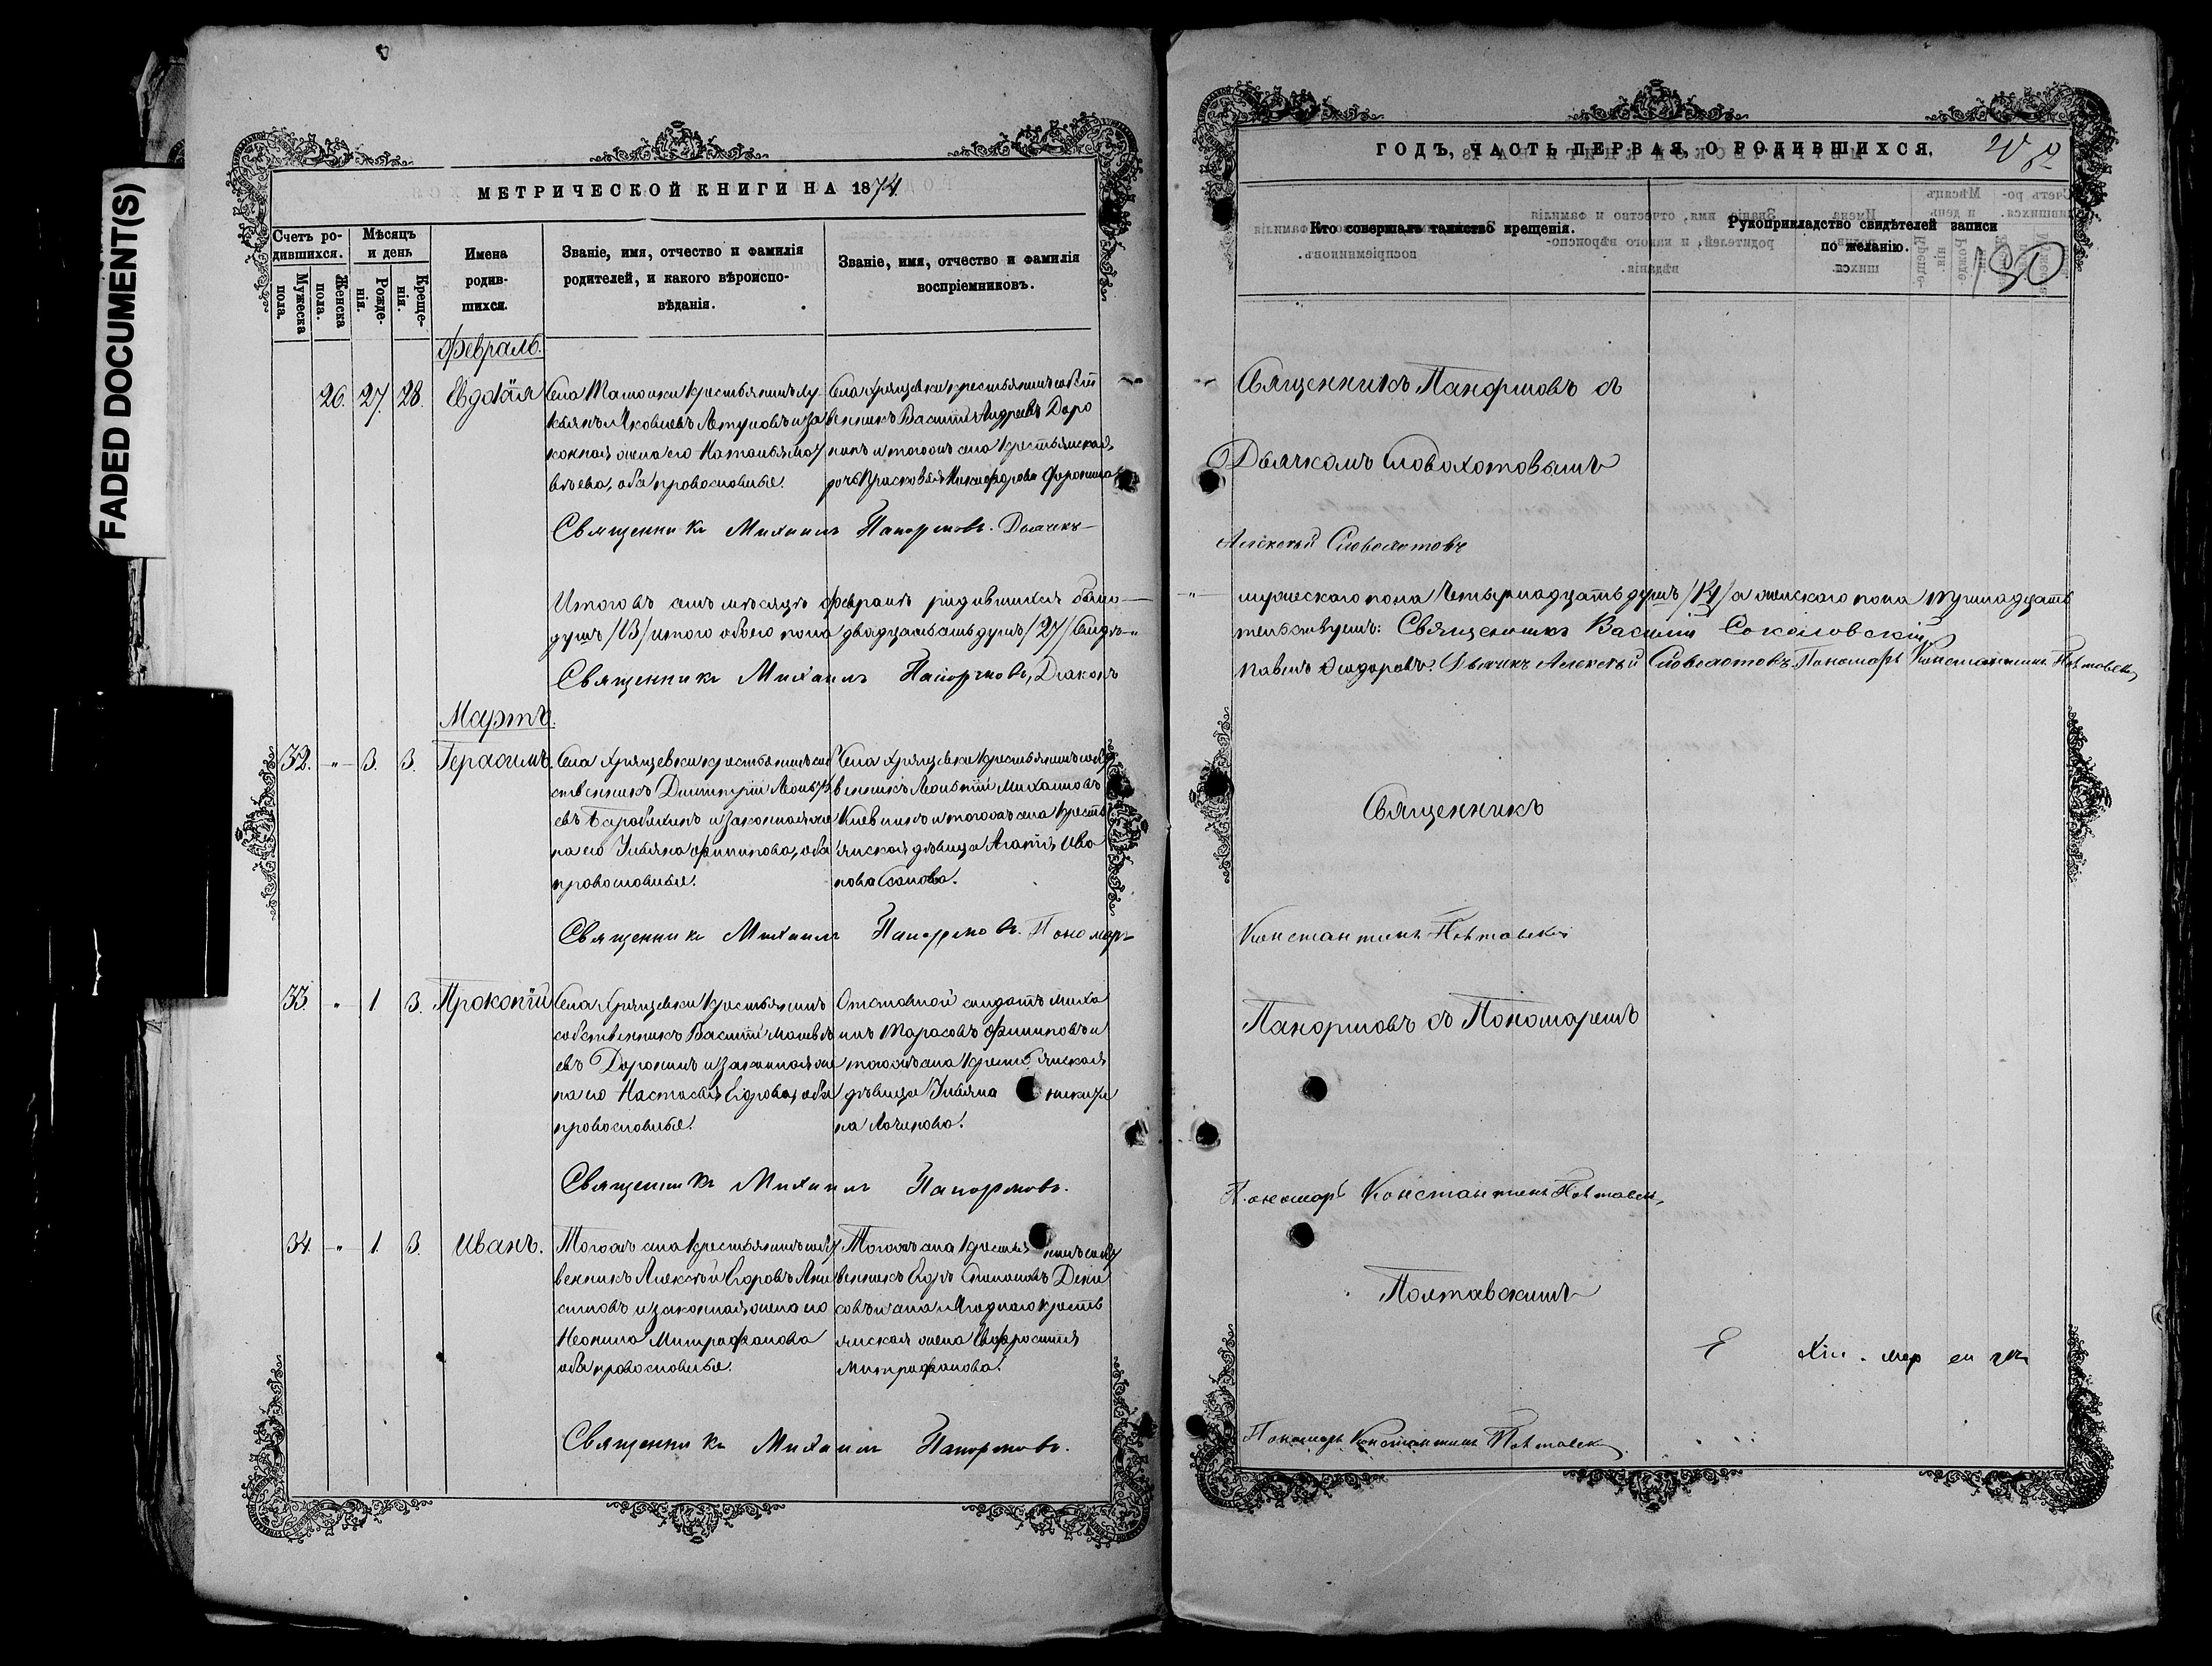 FADED DOCUMENT(S)
МЕТРИЧЕСКОЙ КНИГИ НА 1874
Счетъ ро-
дившихся.
Мужеска
пола.
Женска
пола.
Мѣсяцъ
и день
Рожде-
нія.
Креще-
нія.
Имена
родив-
шихся.
Званіе, имя, отчество и фамилія
родителей, и какого вѣроиспо-
вѣданія.
Званіе, имя, отчество и фамилія
воспріемниковъ.
Февраль.
26. 27. 28. Евдокія
Села Ташолки крестьянинъ Лу
кьянъ Яковлевъ и за
конная жена его Наталья Мат
вѣева, оба православные.
Села Хрящевки крестьянинъ собст
венникъ Василій Андреевъ Доро
нинъ и тогожъ села крестьянская
дочь Прасковья Никифорова Доронина
Священникъ Михаилъ Панормовъ. Дьячекъ
Итого въ семъ мѣсяцѣ февралѣ родившихся было
душъ /13/ итого обоего пола двадцать семь душъ /27/ Свидѣ-
Священникъ Михаилъ Панормовъ, Діаконъ
Мартъ.
32. " 3. 3. Герасимъ
Села Хрящевки крестьянинъ соб
ственникъ Димитрій Леонтъ
евъ и законная же
на его Ульяна Филипова, оба
православные.
Села Хрящевки крестьянинъ собст
венникъ Леонтій Михаиловъ
и тогожъ села кресть
янская дѣвица Агафія Ива
нова
Священникъ Михаилъ Панормовъ. Пономарь
33. " 1. 3. Прокопій
Села Хрящевки крестьянинъ
собственникъ Василій Матвѣ
евъ Доронинъ и законная же
на его Настасья Егорова, оба
православные.
Отставной солдатъ Миха
илъ Тарасовъ Филиповъ и
тогожъ села крестьянская
дѣвица Ульяна
на Логинова.
Священникъ Михаилъ Панормовъ.
34. " 1. 3. Иванъ.
Тогожъ села крестьянинъ собст
венникъ Алексѣй Егоровъ Ани
симовъ и законная жена его
Неонила Митрофанова
оба православные.
Тогожъ села крестьянинъ собст
венникъ Егоръ Дени
совъ и села Ягоднаго кресть
янская жена Евфросинія
Митрофанова.
Священникъ Михаилъ Панормовъ.
ГОДЪ, ЧАСТЬ ПЕРВАЯ, О РОДИВШИХСЯ.
130
Кто совершалъ таинство крещенія.
Рукоприкладство свидѣтелей записи
по желанію.
Священникъ Панормовъ съ
Дьячкомъ Словохотовымъ
Алексѣй Словохотовъ
мужескаго пола четырнадцать душъ /14/ а женскаго пола тринадцать
тельствуемъ: Священникъ Василій Соколовскій
Павелъ Ѳедоровъ. Дьячекъ Алексѣй Словохотовъ. Пономарь Константинъ Полтавскій
Священникъ
Константинъ Полтавскій
Панормовъ съ Пономаремъ
Пономарь Константинъ Полтавскій
Полтавскимъ
Пономарь Константинъ Полтавскій